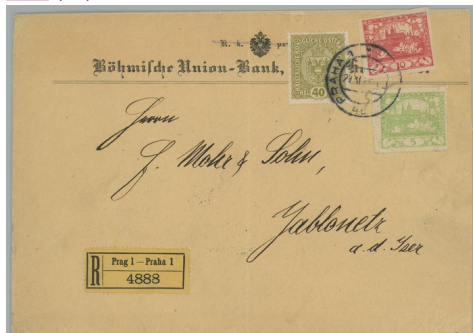 K. k. pr
Böhmische Union-Bank,
40
PRAHA 1
10
5
Herrn
J. Mohr & Sohn,
Jablonetz
a. d. Iser
R
Prag 1 — Praha 1
4888